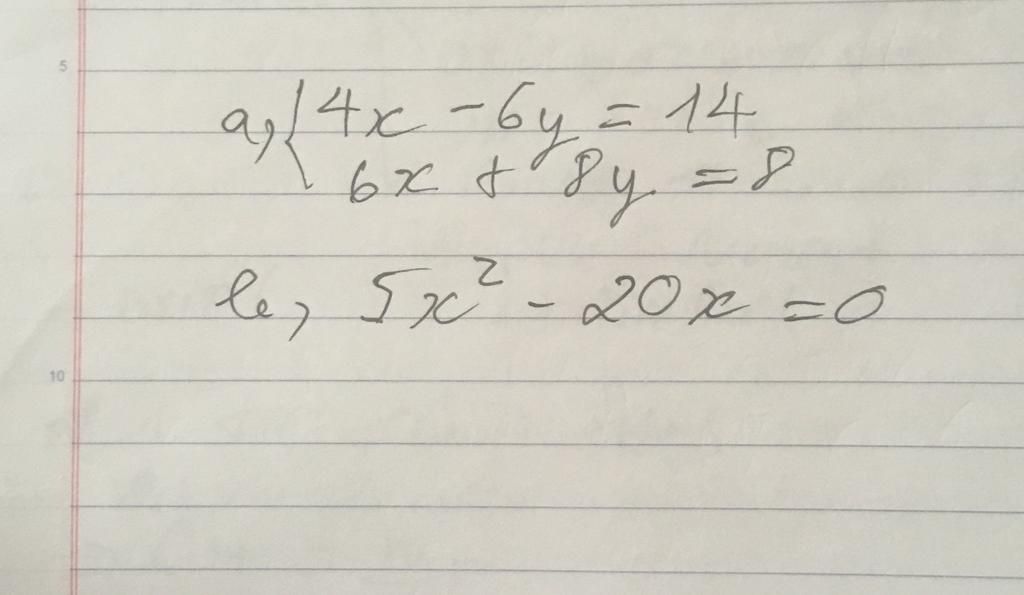 5
a, { 4x - 6y = 14
6x + 8y = 8
b, 5x² - 20x = 0
10